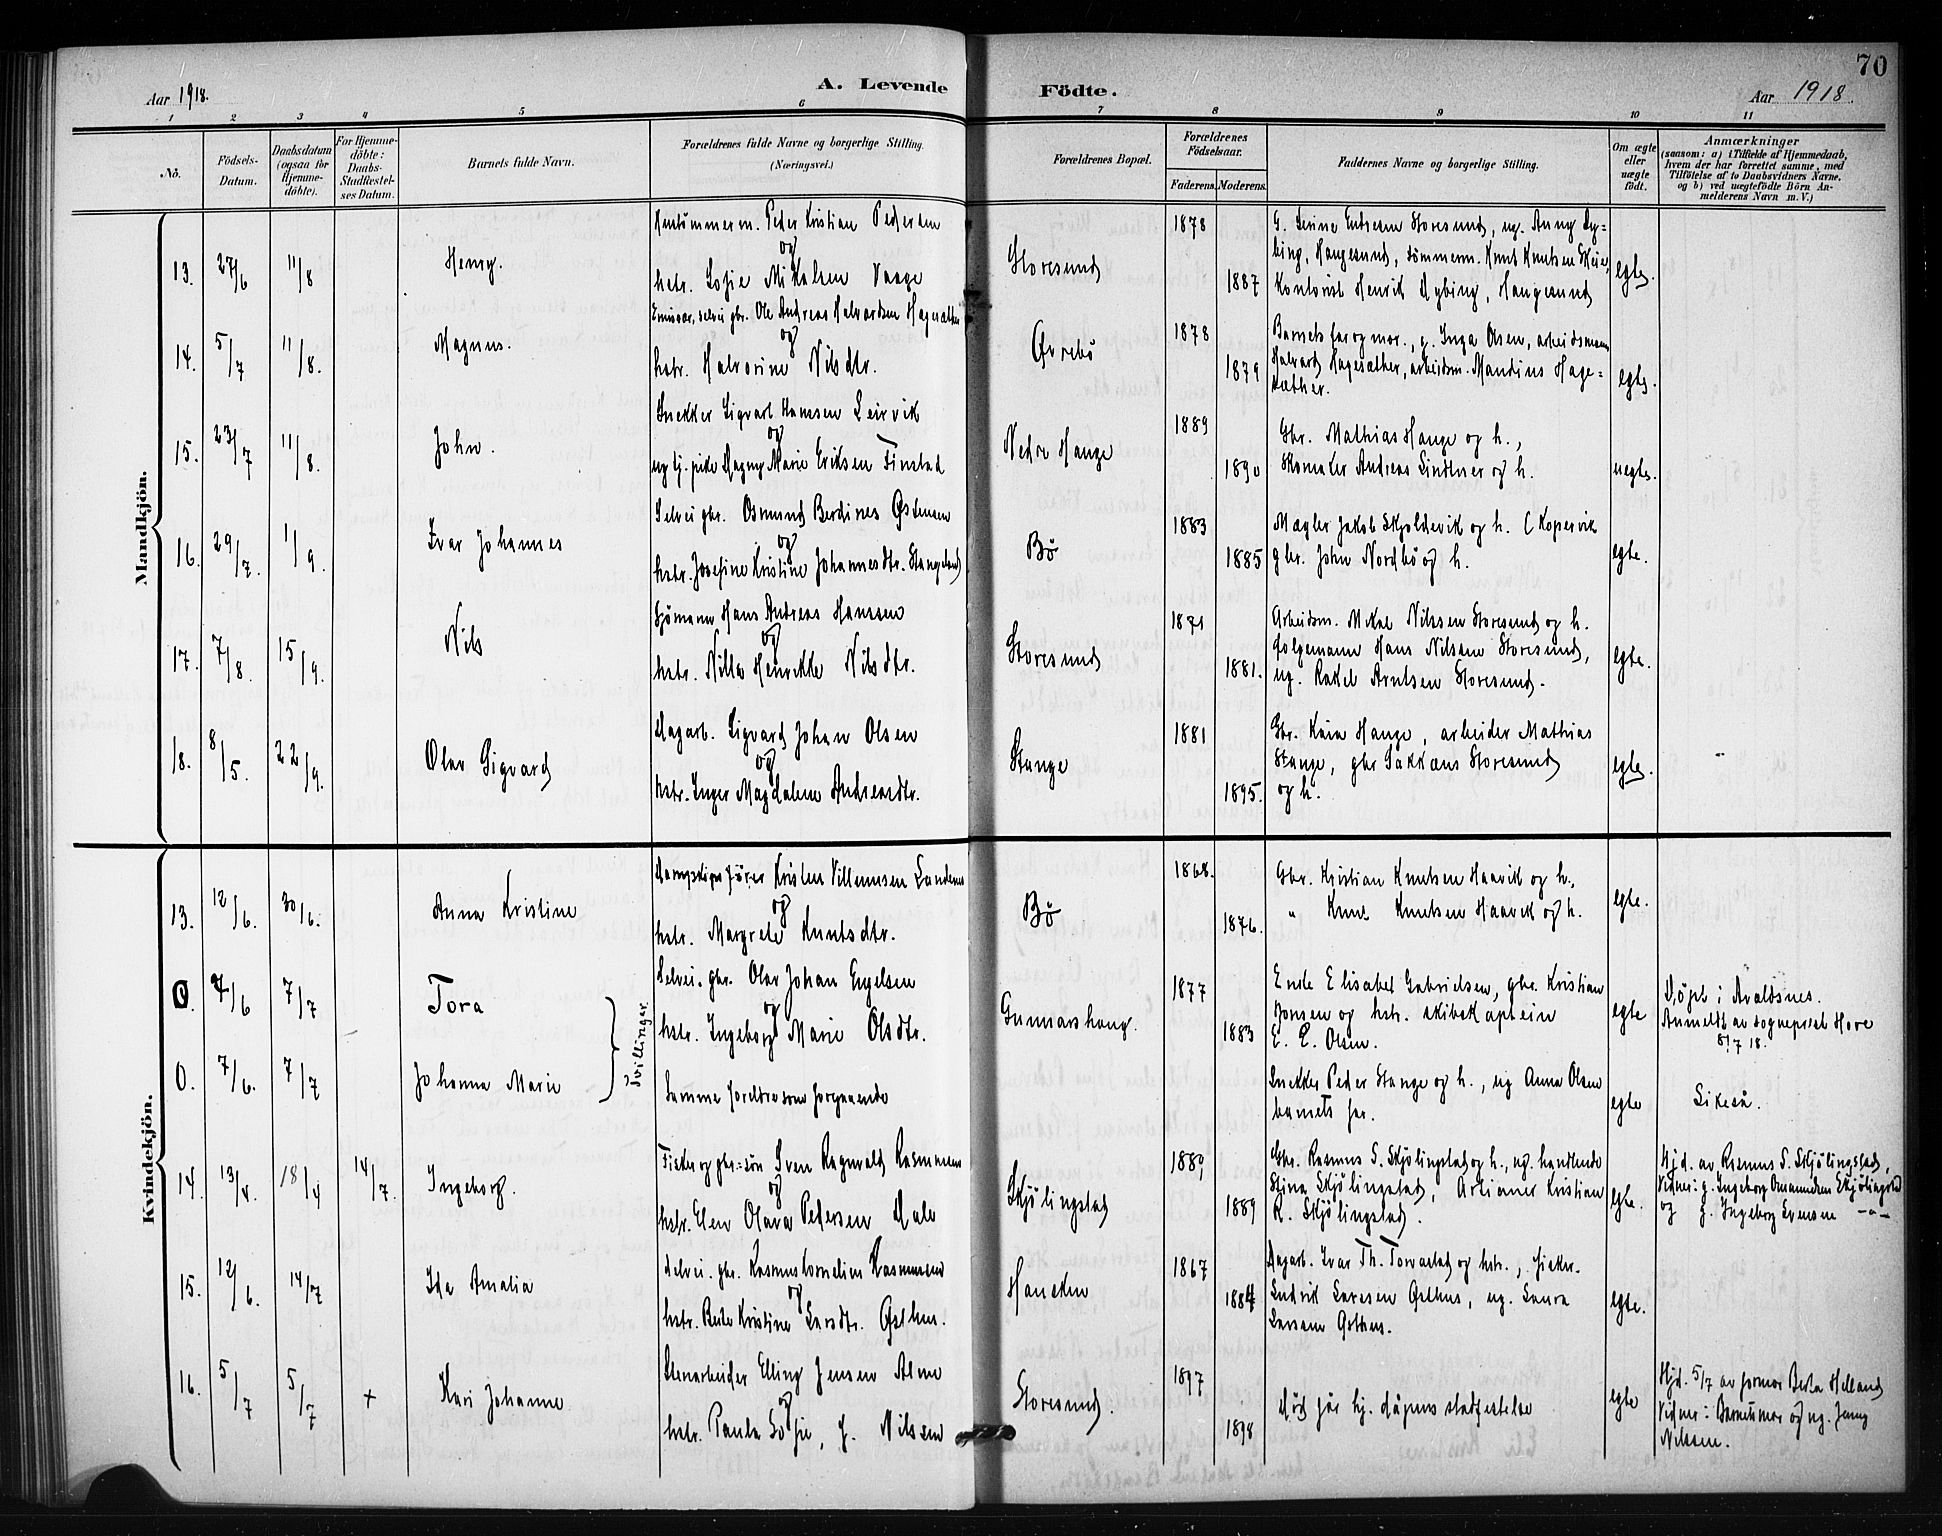 70
Aar 1918.
A. Levende
Födte.
Aar 1918.
1 2 3 4 5 6 7 8 9 10 11
Nö.
Födsels-
Datum.
Daabsdatum
(ogsaa for
Hjemme-
döbte).
For Hjemme-
döbte:
Daabs-
Stadfæstel-
ses Datum.
Barnets fulde Navn.
Forældrenes fulde Navne og borgerlige Stilling.
(Næringsvei.)
Forældrenes Bopæl.
Forældrenes
Födselsaar.
Faderens. Moderens.
Faddernes Navne og borgerlige Stilling.
Om ægte
eller
uægte
födt.
Anmærkninger
(saasom: a) i Tilfælde af Hjemmedaab,
hvem der har forrettet samme, med
Tilföielse af to Daabsvidners Navne,
og b) ved uægtefödte Börn An-
melderens Navn m. V.)
Mandkjön.
13. 27/6 11/8 Henry.
Peder Kristian Pedersen
og
hstr. Sofie Mikalsen Vaage
Storesund 1878 1887
Storesund, ug. Anny Ry=
bing, Haugesund, tömmerm. Knut Knutsen Skeie,
Kontorist Henrik Rybing, Haugesund
egte.
14. 5/7 11/8. Magnus.
Emissær, selvei gbr. Ole Andreas Halvardsen Hagesæther
og
hstr. Halvorine Nilsdtr.
Øvrebö 1878 1879
Barnets far og mor., g. Inga Olsen, arbeidsmann
Halvard Hagesæther, arbeidsm. Mandius Hage=
sæther.
egte.
15. 23/7 11/8. John.
Snekker Sigvart Hanssen Leirvik
og
ug tj. pike Magny Marie Eriksen Finstad
Nedre Hauge 1889 1890
Gbr. Mathias Hauge og h.,
Skomaker Andreas Lindtner og h.
uegte.
16. 29/7. 1/9. Ivar Johannes
Selvei gbr. Osmund Berdines Østensen
og
hstr. Josefine Kristine Johannesdtr. Stangeland
Bø 1883 1885
Mægler Jakob Skjoldevik og h. (Kopervik
gbr. John Nordbö og h.
egte.
17. 7/8. 15/9. Nils
Sjömann Hans Andreas Hanssen
og
hstr. Nilla Henrikke Nilsdtr.
Storesund 1871 1881.
Arbeidsm. Mikal Nilssen Storesund og h.
Hans Nilsen Storesund,
ug. Rakel Arntsen Storesund.
egte.
18. 8/5. 22/9. Olav Sigvard
Dagarb. Sigvard Johan Olsen
og
hstr. Inger Magdalene Andreasdtr.
Stange 1881 1895.
Gbr. Knia Hauge, arbeider Mathias
Stange, gbr Sakkæus Storesund
og h.
egte.
Kvindekjön.
13. 12/6. 30/6. Anna Kristine
Dampskipsförer Kristen Villumsen
og
hstr. Margrete Knutsdtr.
Bø 1868. 1876.
Gbr. Kristian Knutsen Haavik og h.,
" Knut Knutsen Haavik og h.
egte.
0. 7/6 7/7 Tora
Selvei. gbr. Olav Johan Engelsen
og
hstr. Ingeborg Marie Olsdtr.
Gunnarshaug. 1877 1883
Enke Elisabet Gabrielsen, gbr. Kristian
Jonsen og hstr. skibskaptein
E. E. Olsen.
egte
Döpt i Avaldsnes.
Anmeldt av sogneprest Hove
8/7 18.
Tvillinger.
0. 7/6. 7/7 Johanna Marie
Samme foreldre som forgaaende
Snekker Peder Stange og h., ug Anna Olsen
barnets far.
egte
Likeså.
14. 13/4. 18/4 14/7. Ingeborg.
Fisker og gbr.=sön Sven Ragnvald Rasmussen
og
hstr. Elen Olava Pedersen Dale
Skjölingstad 1889 1889
Gbr. Rasmus S. Skjölingstad og h., ug. handlende
Stina Skjölingstad, Artianer Kristian
R. Skjölingstad.
egte.
Hjd. av Rasmus S. Skjölingstad,
Vidner: g. Ingeborg Osmundsen Skjölingstad
og g. Ingeborg Svensen -"-
15. 12/6. 14/7 Ida Amalia
Selvei. gbr. Rasmus Cornelius Rasmussen
og
hstr. Berte Kristine Larsdtr. Østhus.
Hausken 1867 1884
Dagarb. Ivar Th. Torvastad og hstr., fisker.
Ludvik Larsen Østhus, ug. Laura
Larsen Østhus.
egte.
16. 5/7 5/7 + Kari Johanne
Stenarbeider Elling Jensen Alme
og
hstr. Paula Sofie, f. Nilsen
Storesund. 1897 1898
död för hj. dåpens stadfestelse
egte
Hjd. 5/7 av formor Berta Helland
Vidner: Barnets mor og ug. Jenny
Nilssen.